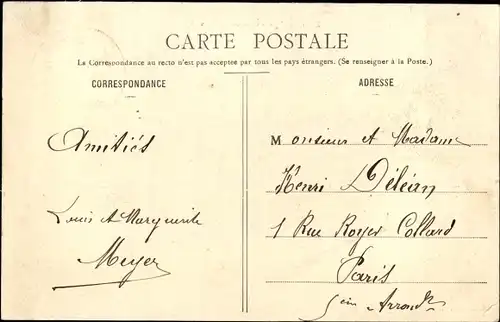 CARTE POSTALE
La Correspondance au recto n'est pas acceptée par tous les pays étrangers. (Se renseigner à la Poste.)
CORRESPONDANCE
Amitiés
Louis et Marguerite
Meyer
ADRESSE
Monsieur et Madame
Henri Déléan
1 Rue Royer Collard
Paris
5èm Arrondt